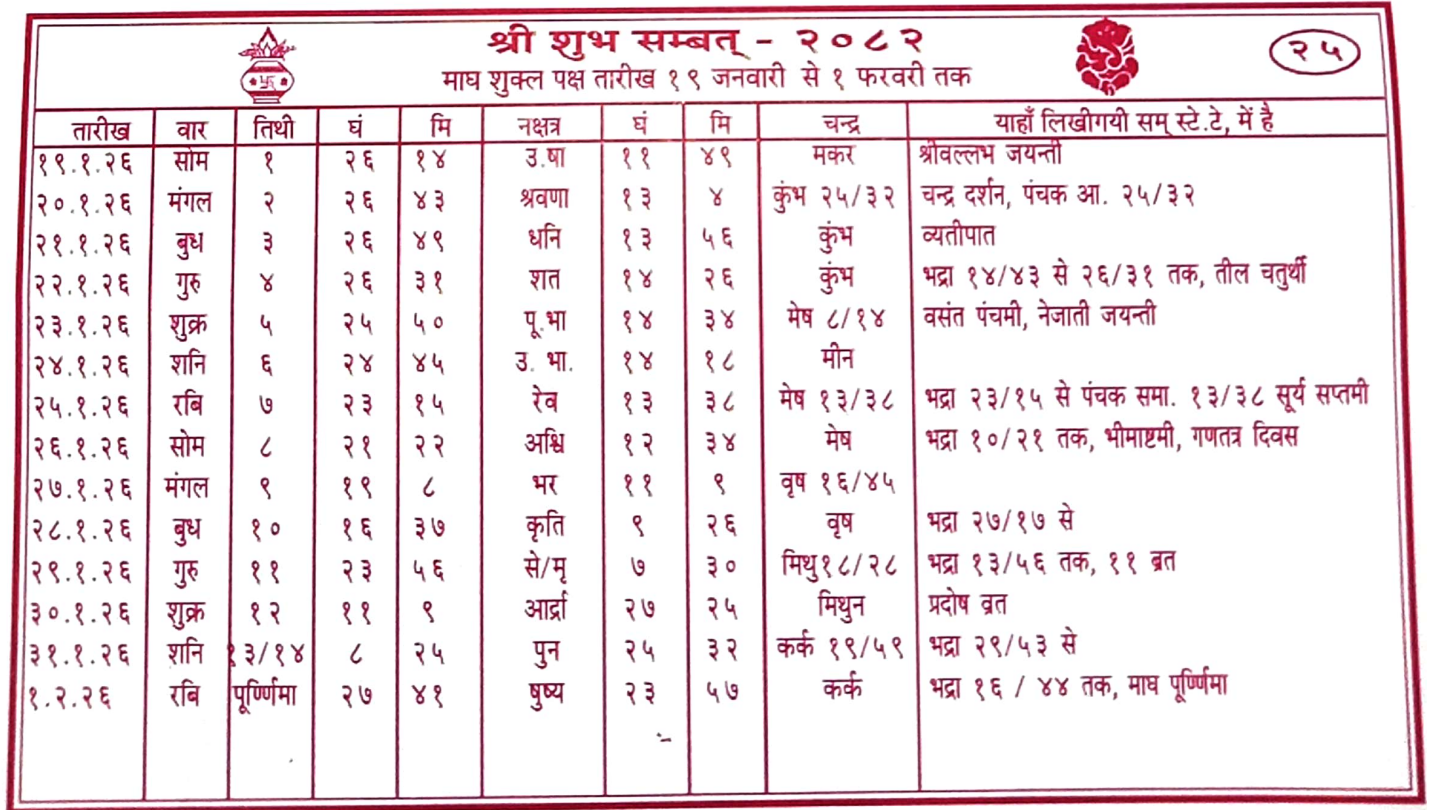 श्री शुभ सम्बत् - २०८२
२५
माघ शुक्ल पक्ष तारीख १९ जनवारी से १ फरवरी तक
तारीख वार तिथी घं मि नक्षत्र घं मि चन्द्र याहाँ लिखीगयी सम् स्टे.टे, में है
१९.१.२६ सोम १ २६ १४ उ.षा ११ ४९ मकर श्रीवल्लभ जयन्ती
२०.१.२६ मंगल २ २६ ४३ श्रवणा १३ ४ कुंभ २५/३२ चन्द्र दर्शन, पंचक आ. २५/३२
२१.१.२६ बुध ३ २६ ४९ धनि १३ ५६ कुंभ व्यतीपात
२२.१.२६ गुरु ४ २६ ३१ शत १४ २६ कुंभ भद्रा १४/४३ से २६/३१ तक, तील चतुर्थी
२३.१.२६ शुक्र ५ २५ ५० पू.भा १४ ३४ मेष ८/१४ वसंत पंचमी, नेजाती जयन्ती
२४.१.२६ शनि ६ २४ ४५ उ. भा. १४ १८ मीन
२५.१.२६ रबि ७ २३ १५ रेव १३ ३८ मेष १३/३८ भद्रा २३/१५ से पंचक समा. १३/३८ सूर्य सप्तमी
२६.१.२६ सोम ८ २१ २२ अश्वि १२ ३४ मेष भद्रा १०/२१ तक, भीमाष्टमी, गणतत्र दिवस
२७.१.२६ मंगल ९ १९ ८ भर ११ ९ वृष १६/४५
२८.१.२६ बुध १० १६ ३७ कृति ९ २६ वृष भद्रा २७/१७ से
२९.१.२६ गुरु ११ २३ ५६ से/मृ ७ ३० मिथु१८/२८ भद्रा १३/५६ तक, ११ ब्रत
३०.१.२६ शुक्र १२ ११ ९ आर्द्रा २७ २५ मिथुन प्रदोष व्रत
३१.१.२६ शनि १३/१४ ८ २५ पुन २५ ३२ कर्क १९/५९ भद्रा २९/५३ से
१.२.२६ रबि पूर्ण्णिमा २७ ४१ षुष्य २३ ५७ कर्क भद्रा १६ / ४४ तक, माघ पूर्ण्णिमा